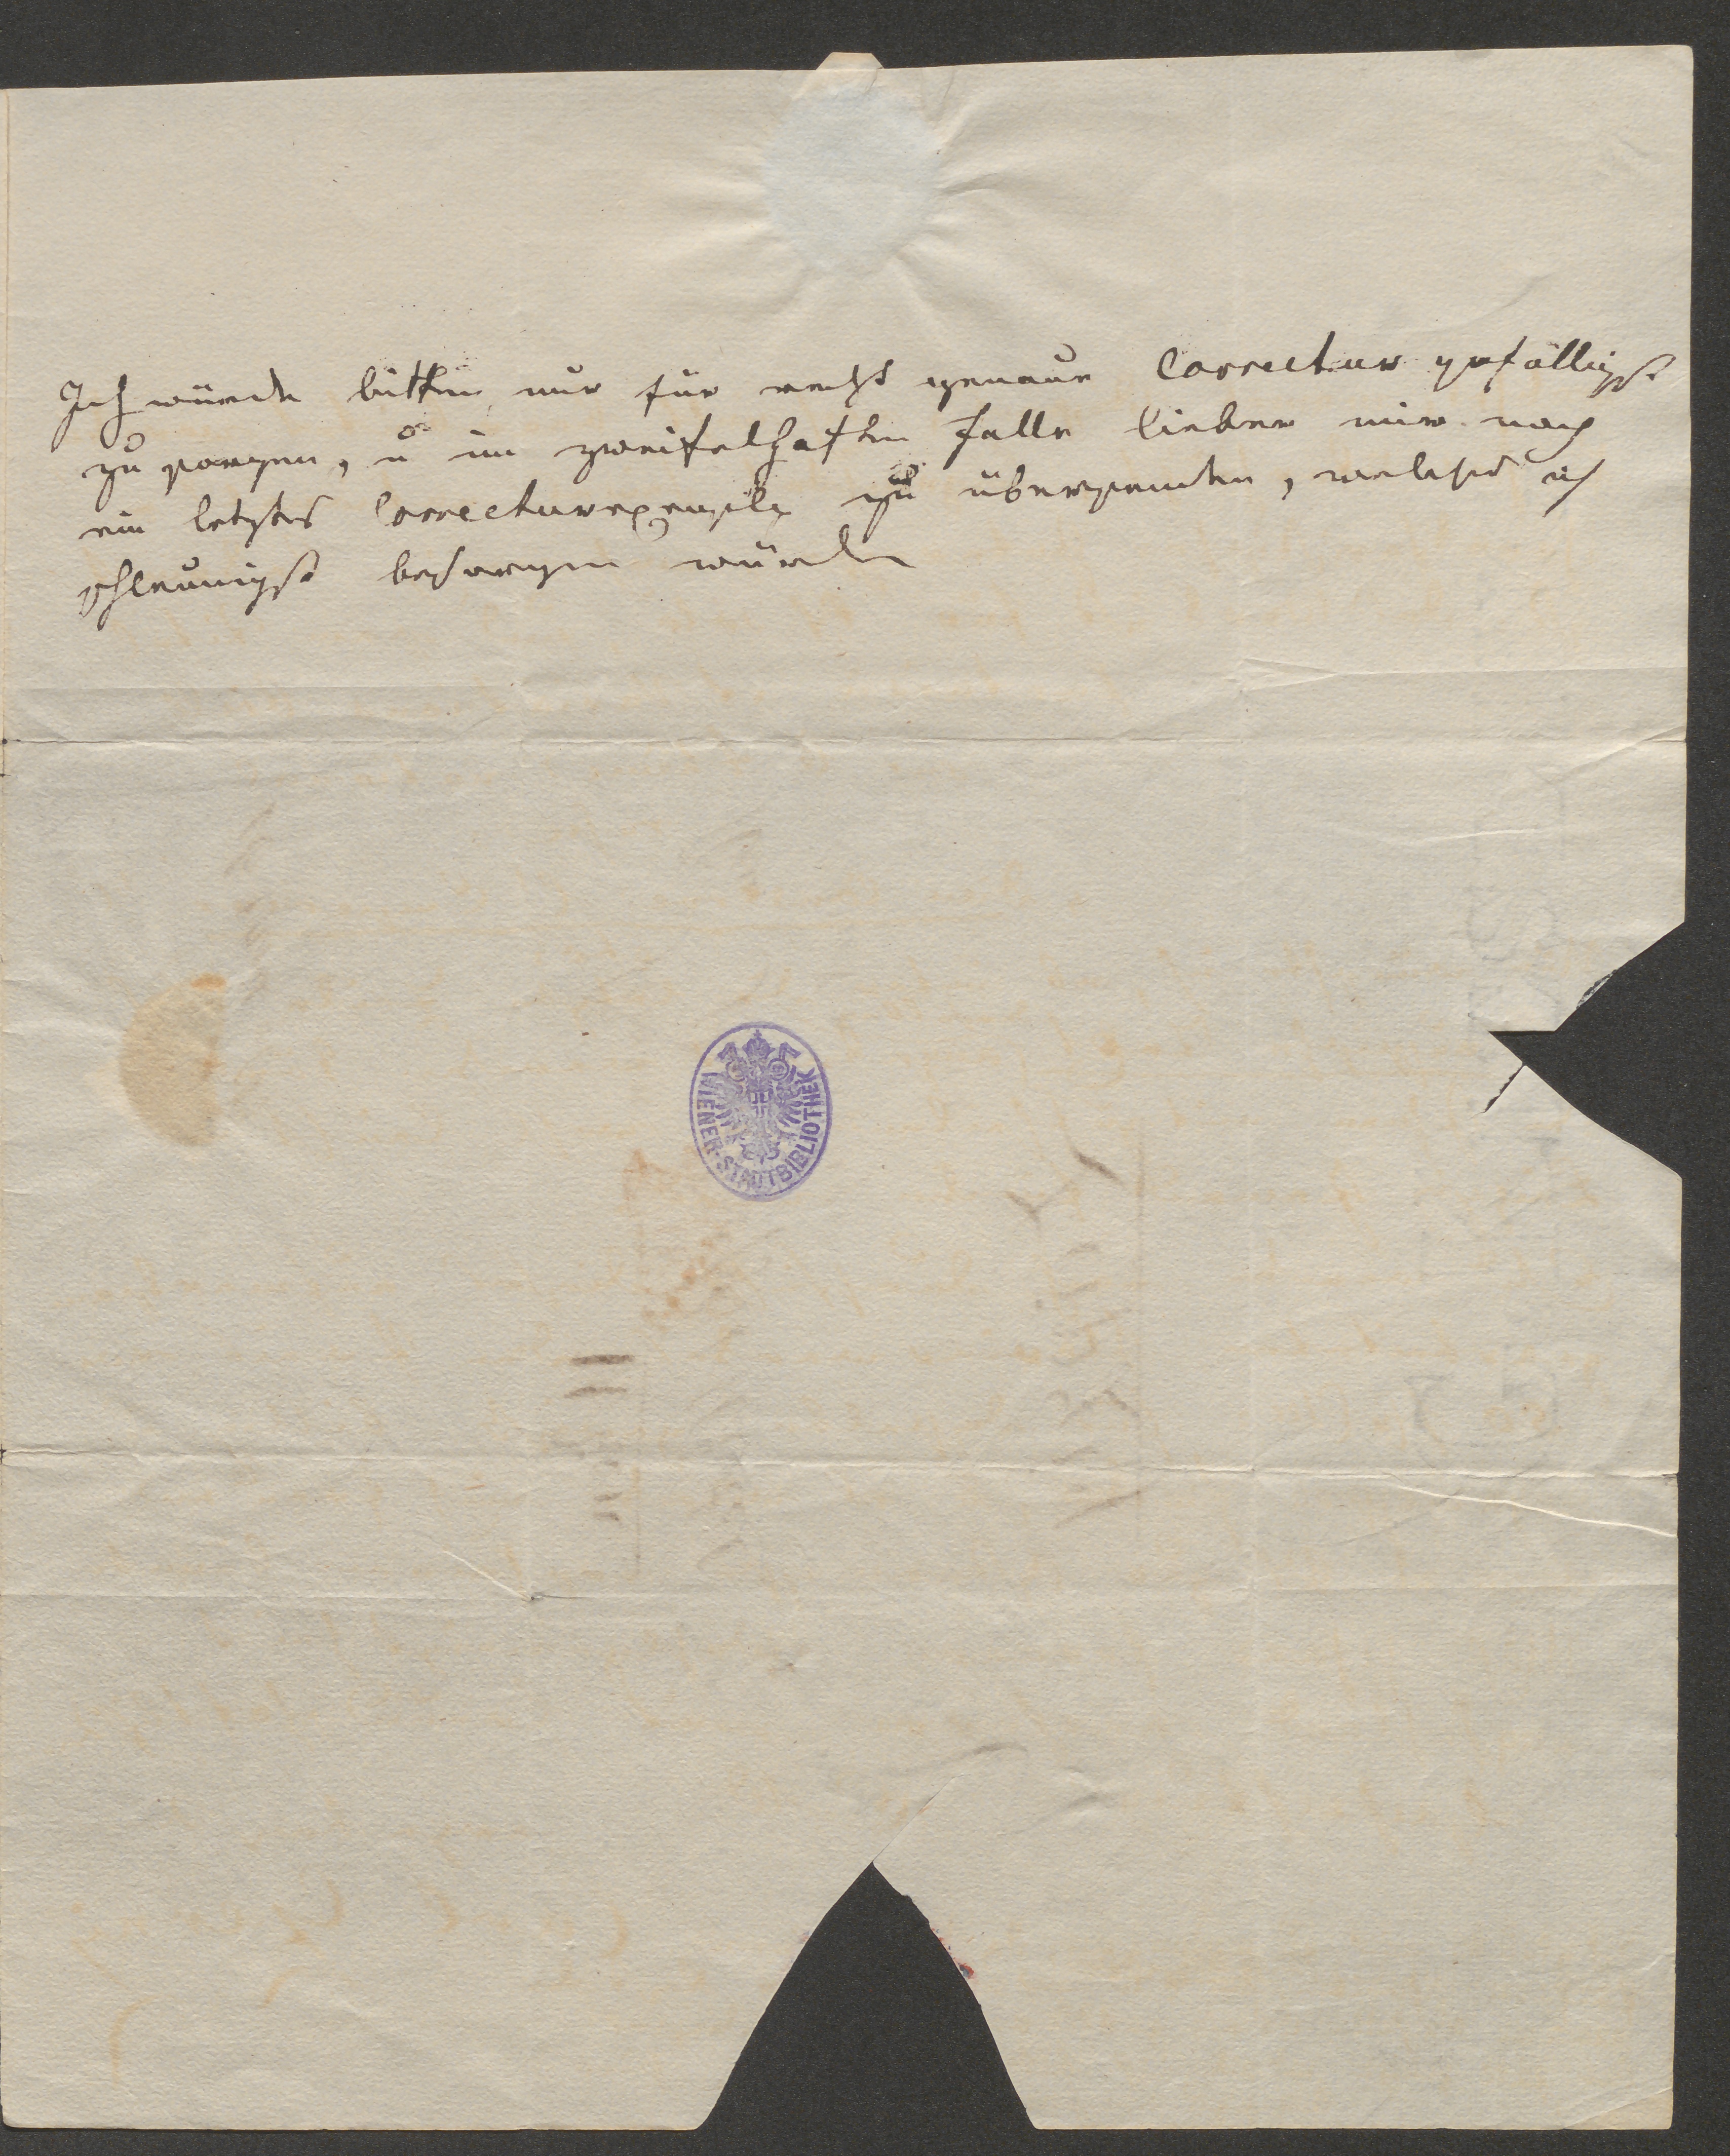 Ich würde bitten, nur für recht genaue Correctur gefälligst
zu sorgen, u im zweifelhaften Falle lieber mir noch
ein letztes Correcturexempl. zu übersenden, welches ich
schleunigst besorgen würde
WIENER STADTBIBLIOTHEK